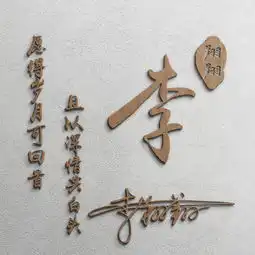 愿得岁月可回首
且以深情共白头
李
翔翔
李翔翔